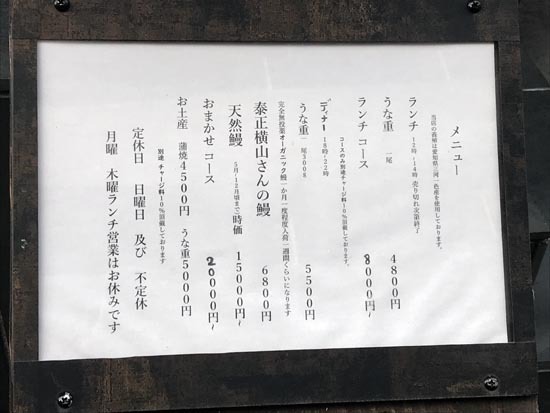 メニュー
当店の養鰻は愛知県三河一色産を使用しております。
ランチ 12時~14時 売り切れ次第終了
うな重 一尾 4800円
ランチ コース 8000円~
コースのみ別途チャージ料10%頂戴しております。
ディナー 18時~22時
うな重 一尾300g 5500円
完全無投薬オーガニック鰻 一か月一度程度入荷 一週間くらいになります
泰正横山さんの鰻 6800円
天然鰻 5月~12月頃まで 時価 15000円~
おまかせ コース 20000円~
別途 チャージ料10%頂戴しております
お土産 蒲焼4500円 うな重5000円
定休日 日曜日 及び 不定休
月曜 木曜ランチ営業はお休みです